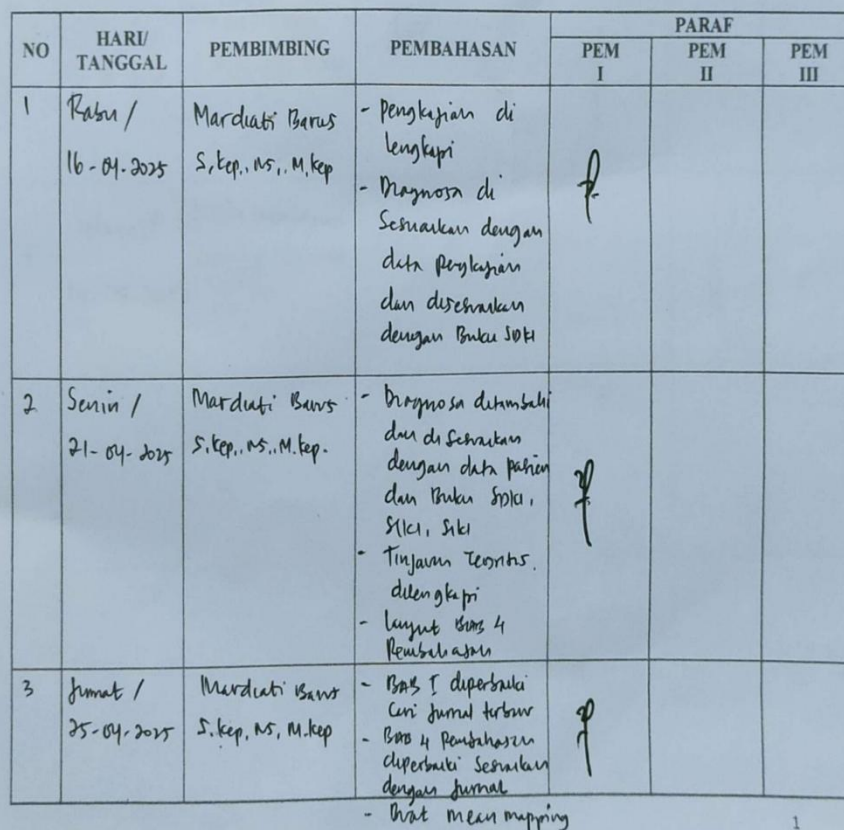 NO
HARI/
TANGGAL
PEMBIMBING
PEMBAHASAN
PARAF
PEM
I
PEM
II
PEM
III
1
Rabu /
16-04-2025
Mardiati Barus
S,kep,, NS,, M,kep
- Pengkajian di
lengkapi
- Diagnosa di
Sesuaikan dengan
data pengkajian
dan disesuaikan
dengan Buku SDKI
2
Senin /
21-04-2025
Mardiati Barus
S,kep,, NS,, M.kep.
- Diagnosa ditambahi
dan disesuaikan
dengan data pasien
dan Buku SDKI,
SLKI, SIKI
- Tinjauan Teoritis.
dilengkapi
- lanjut BAB 4
Pembahasan
3
Jumat /
25-04-2025
Mardiati Barus
S.kep, NS, M.kep
- BAB I diperbaiki
Cari Jurnal terbaru
- BAB 4 Pembahasan
diperbaiki Sesuaikan
dengan Jurnal
- Buat mean mapping
1